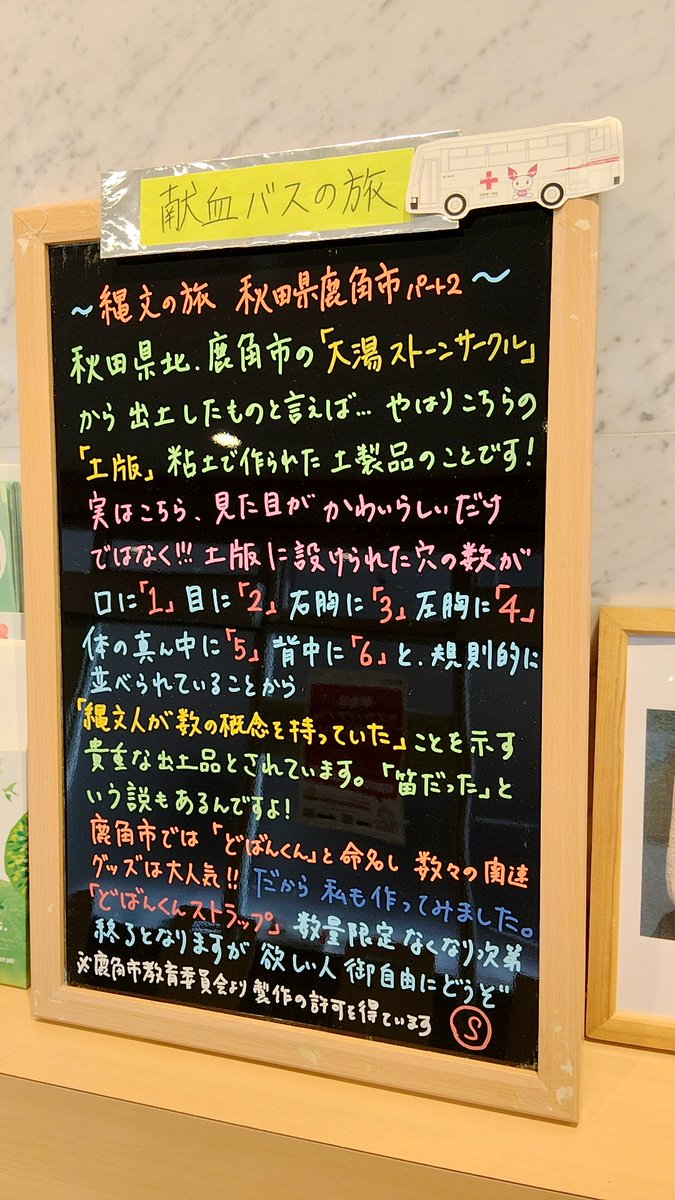 献血バスの旅
～縄文の旅 秋田県鹿角市パート2～
秋田県北、鹿角市の「大湯ストーンサークル」
から出土したものと言えば… やはりこちらの
「土版」粘土で作られた土製品のことです!
実はこちら、見た目がかわいらしいだけ
ではなく!!! 土版に設けられた穴の数が
口に「1」目に「2」右胸に「3」左胸に「4」
体の真ん中に「5」背中に「6」と、規則的に
並べられていることから
「縄文人が数の概念を持っていた」ことを示す
貴重な出土品とされています。「笛だった」と
いう説もあるんですよ!
鹿角市では「どばんくん」と命名し 数々の関連
グッズは大人気!! だから私も作ってみました。
「どばんくんストラップ」数量限定なくなり次第
終了となりますが 欲しい人御自由にどうぞ
※鹿角市教育委員会より製作の許可を得ています S